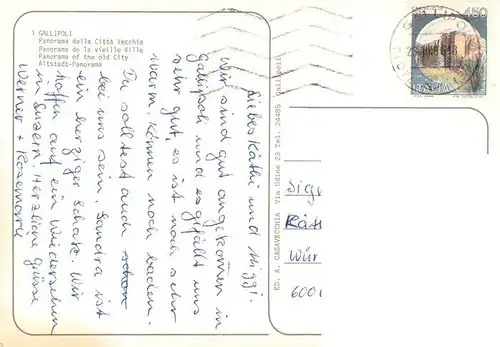 I GALLIPOLI
Panorama della Città Vecchia
Panorama de la vieille Ville
Panorama of the old City
Altstadt-Panorama
450
ITALIA
Liebes Käthi und Miggi!
Wir sind gut angekommen in
Gallipoli und es gefällt uns
sehr gut, es ist noch sehr
warm, können noch baden.
Du solltest auch schon
bei uns sein. Sandra ist
ein herziger Schatz. Wir
hoffen auf ein Wiedersehen
in Luzern. Herzliche Grüsse
Werner + Rosemarie
ED. A. CASAVECCHIA Via Udine 23 Tel. 24485 Gallipoli
Sig
Kät
Wür
600